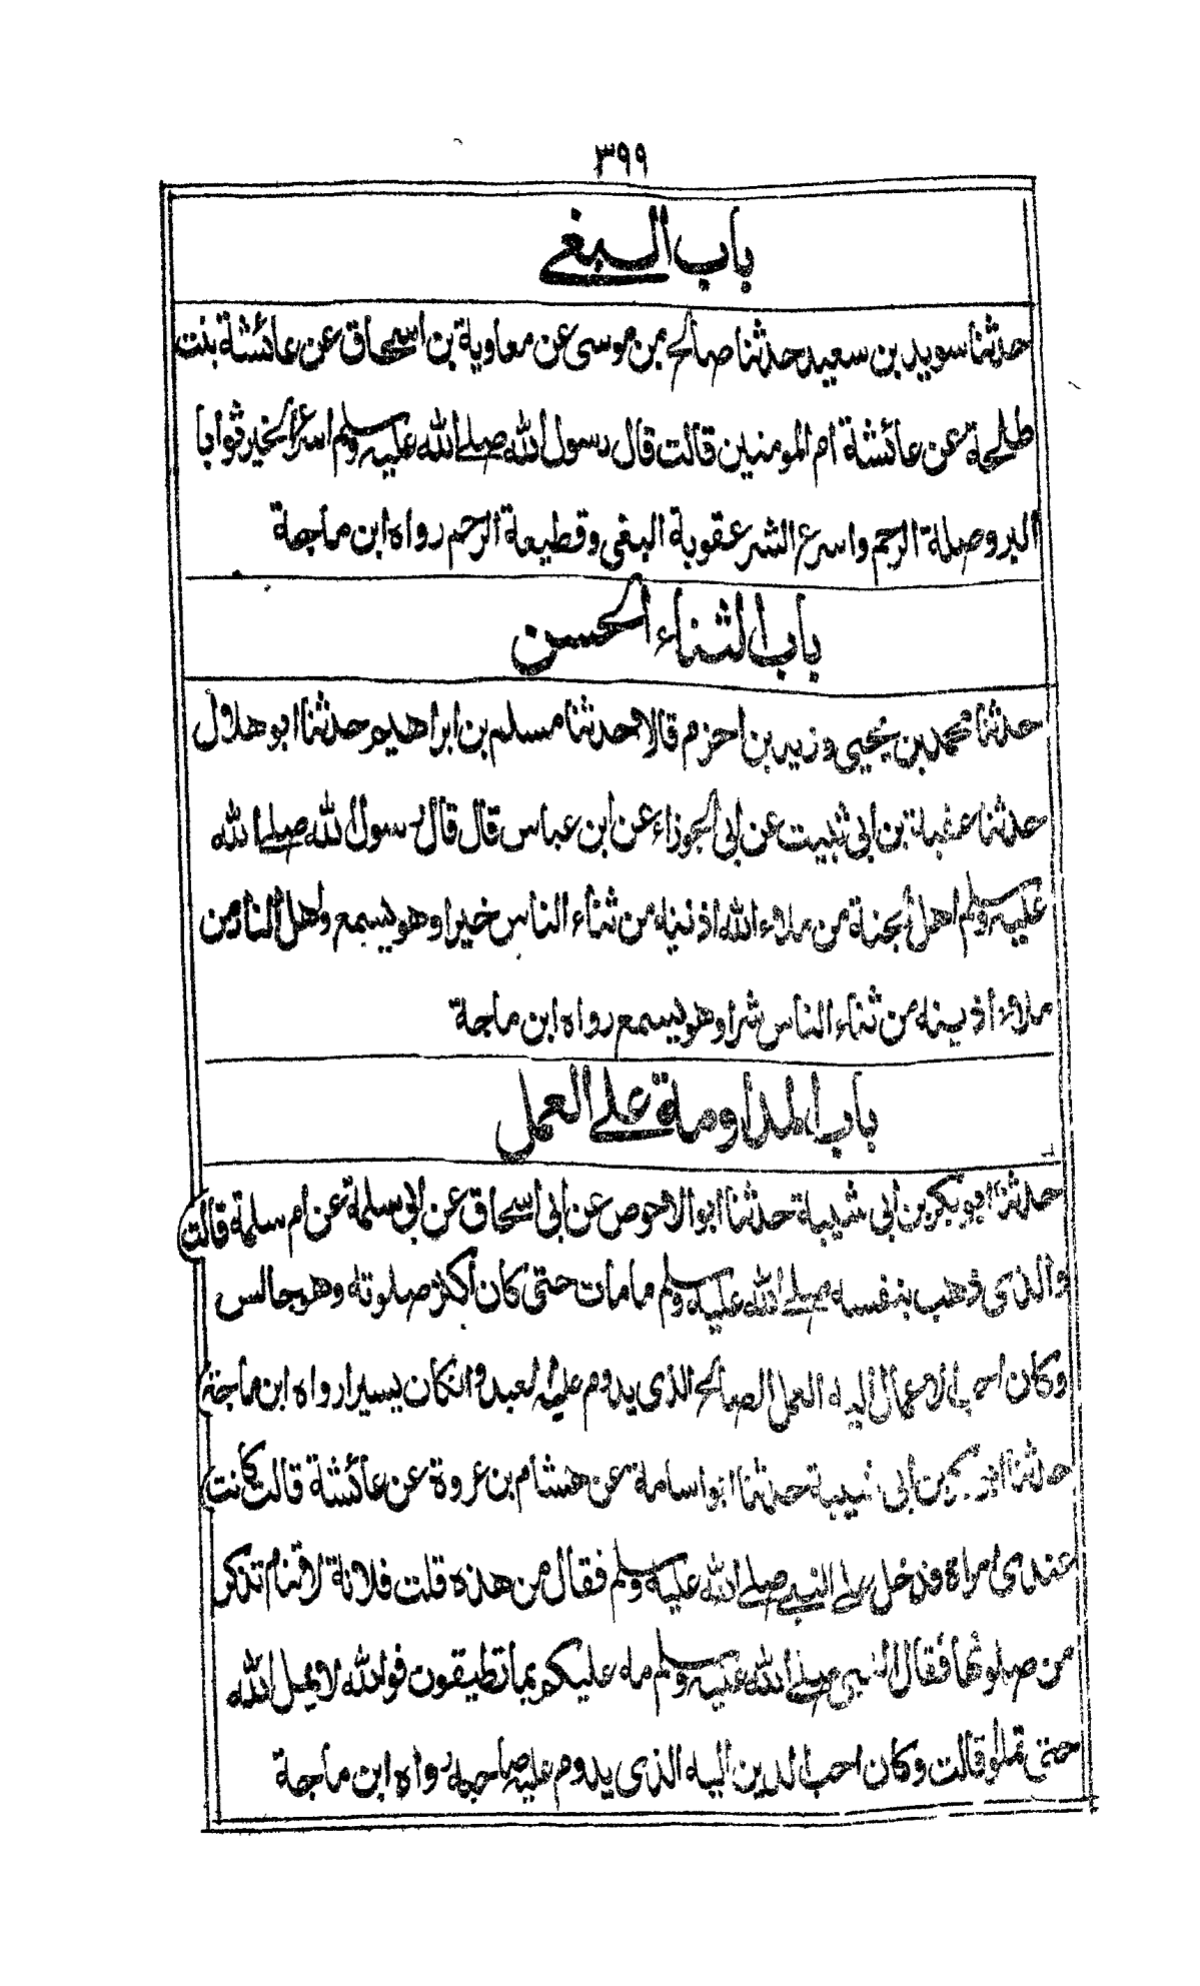 ٣٩٩
باب البغي
حدثنا سويد بن سعيد حدثنا صالح بن موسى عن معاوية بن اسحاق عن عائشة بنت
طلحة عن عائشة ام المومنين قالت قال رسول الله صلى الله عليه وسلم اسرع الخير ثوابا
البر وصلة الرحم واسرع الشر عقوبة البغي وقطيعة الرحم رواه ابن ماجة
باب الثناء الحسن
حدثنا محمد بن يحيى وزيد بن احزم قالا حدثنا مسلم بن ابراهيم حدثنا ابو هلال
حدثنا عقبة بن ابي ثبيت عن ابي الجوزاء عن ابن عباس قال قال رسول الله صلى الله
عليه وسلم اهل الجنة من ملاء الله اذنيه من ثناء الناس خيرا وهو يسمع واهل النار من
ملاء اذنيه من ثناء الناس شرا وهو يسمع رواه ابن ماجة
باب المداومة على العمل
حدثنا ابو بكر بن ابي شيبة حدثنا ابو الاحوص عن ابي اسحاق عن ابي سلمة عن ام سلمة قالت
والذى ذهب بنفسه صلى الله عليه وسلم مامات حتى كان اكثر صلوته وهو جالس
وكان احب الاعمال اليه العمل الصالح الذى يدوم عليه العبد وانكان يسيرا رواه ابن ماجة
حدثنا ابو بكر بن ابي شيبة حدثنا ابو اسامة عن هشام بن عروة عن عائشة قالت كانت
عندى امراة فدخل على النبي صلى الله عليه وسلم فقال من هذه قلت فلانة لا تنام تذكر
من صلوتها فقال النبي صلى الله عليه وسلم مه عليكم بما تطيقون فوالله لا يمل الله
حتى تملو قالت وكان احب الدين اليه الذى يدوم عليه صاحبه رواه ابن ماجة